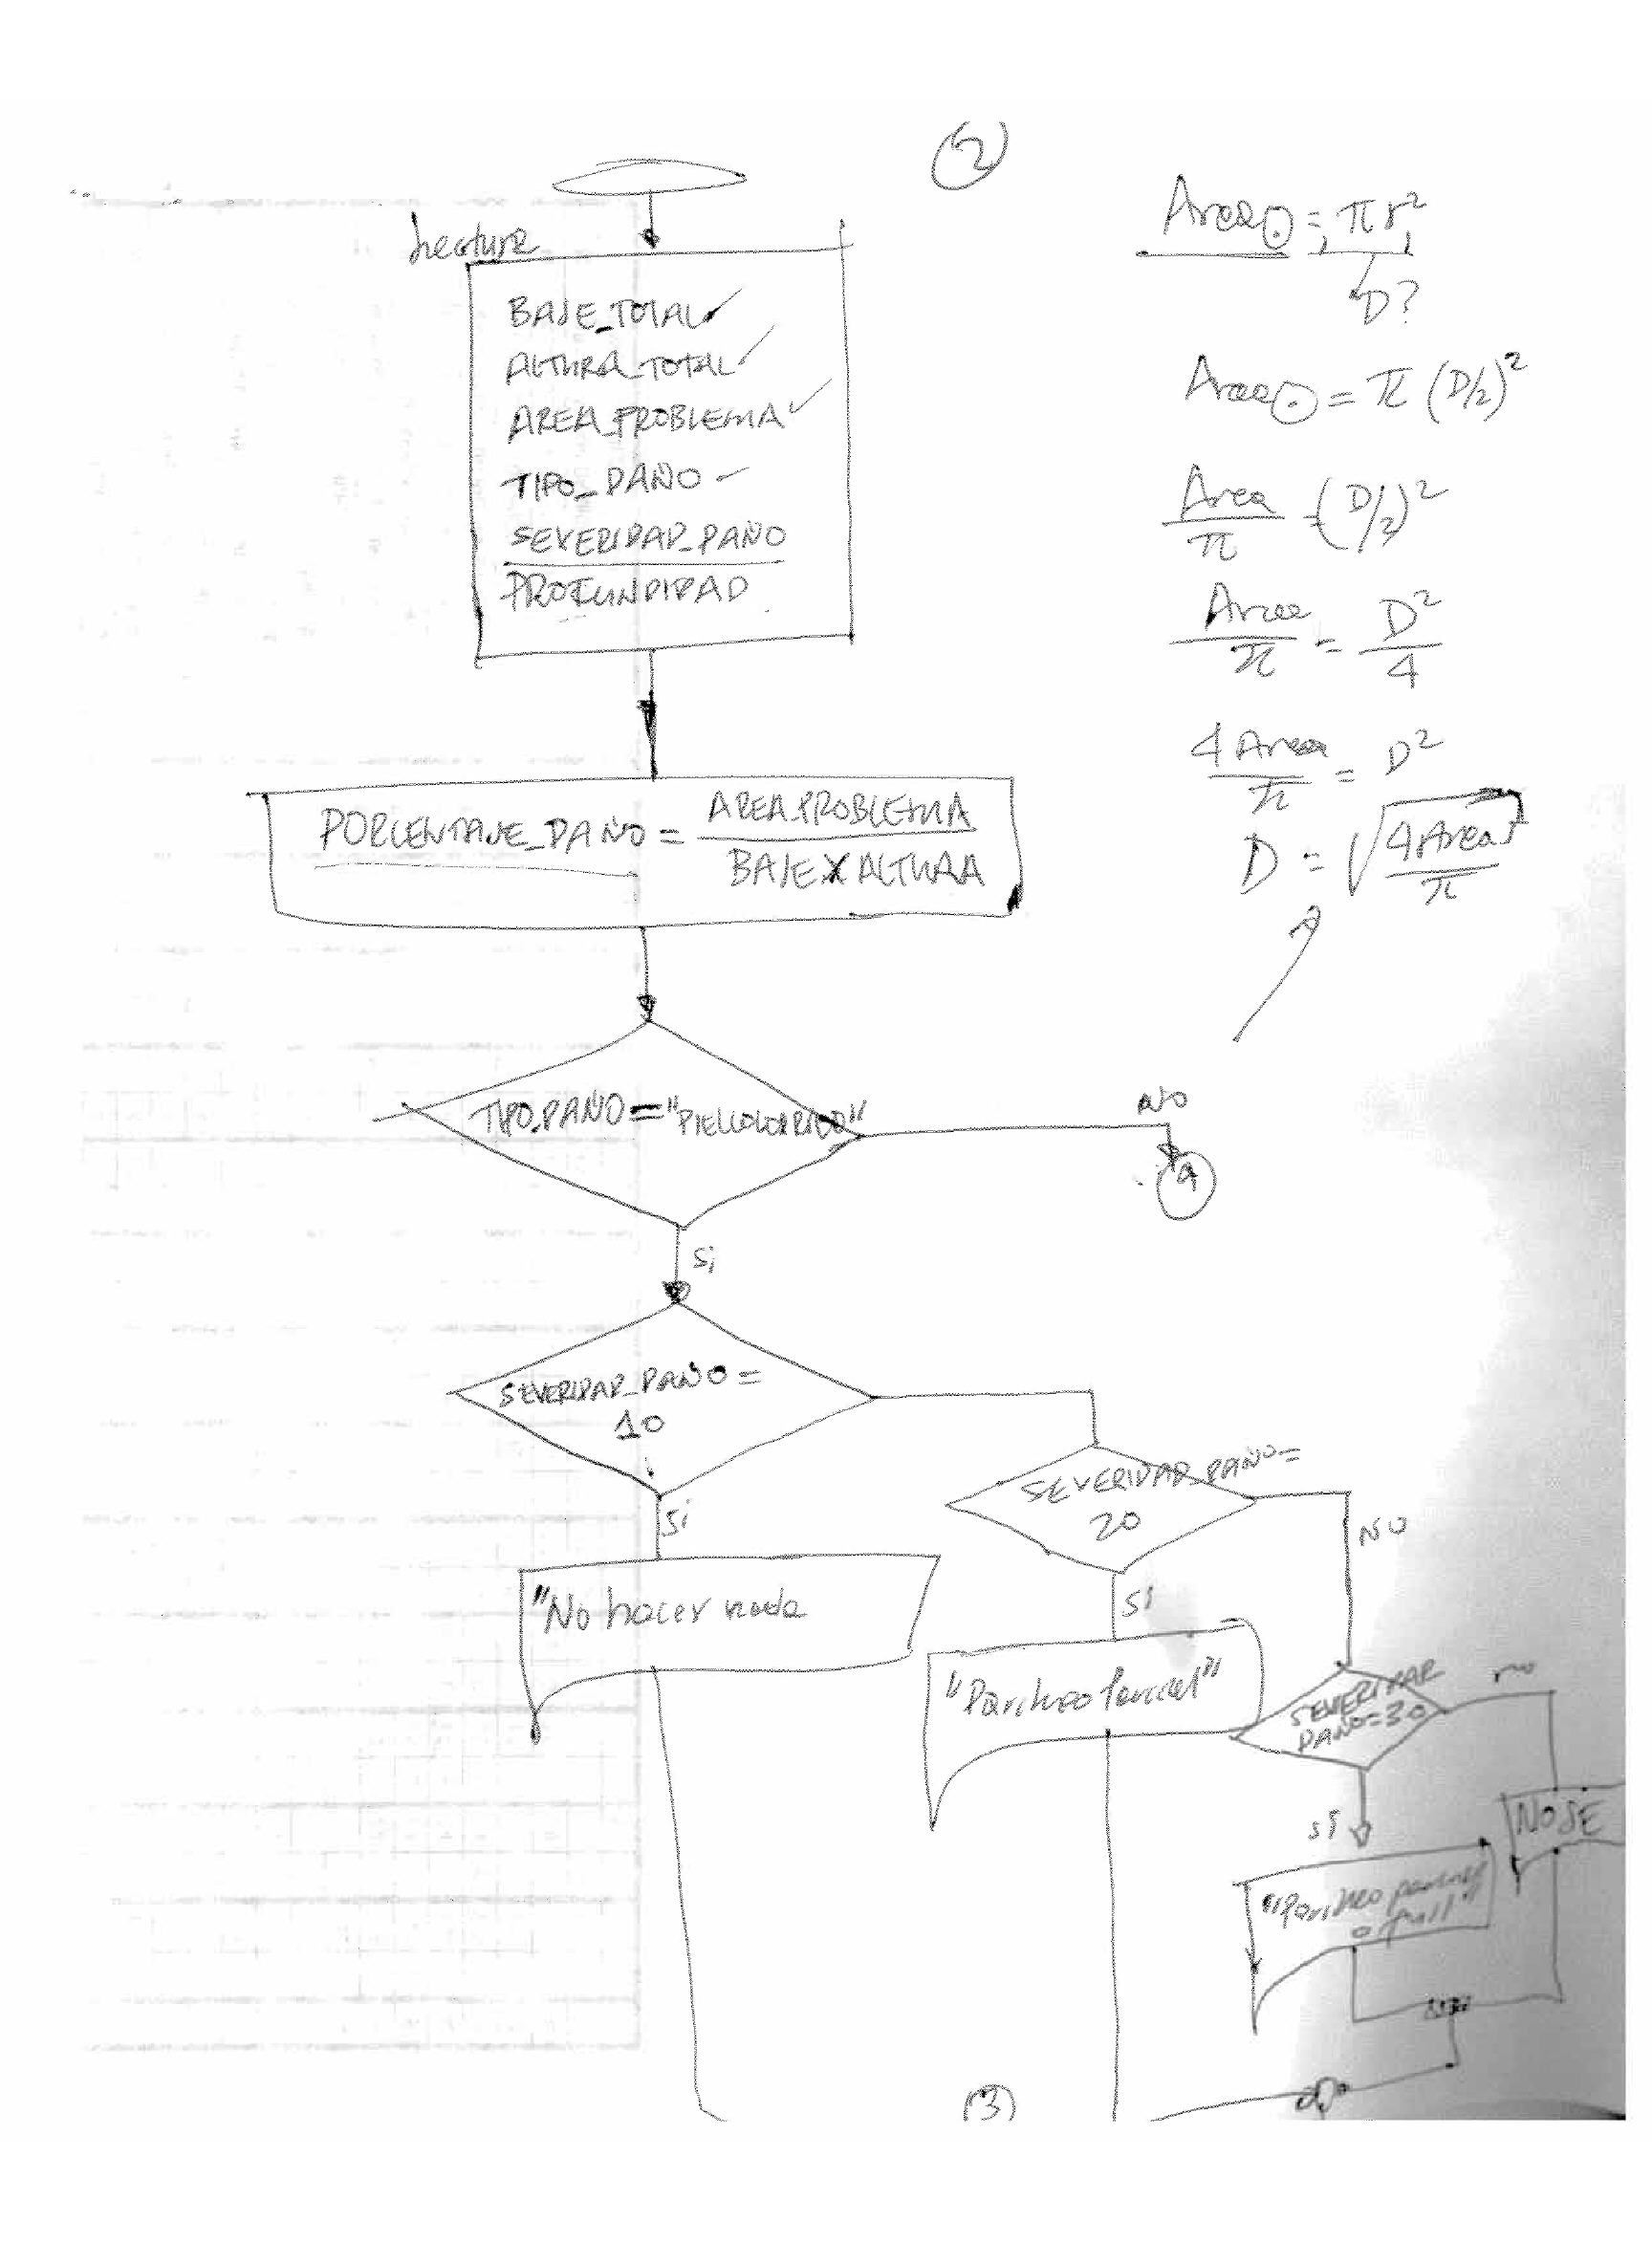 (2)
Lectura
BASE_TOTAL ✓
ALTURA_TOTAL ✓
AREA_PROBLEMA ✓
TIPO_DAÑO -
SEVERIDAD_DAÑO
PROFUNDIDAD
PORCENTAJE_DAÑO = AREA_PROBLEMA
BASE X ALTURA
TIPO_DAÑO = "PIELCOCODRILO"
NO
Si
SEVERIDAD_DAÑO =
10
Si
"No hacer nada
SEVERIDAD_DAÑO =
20
NO
Si
"Parcheo Parcial"
SEVERIDAD
DAÑO=30
no
Si
NOSE
"Parcheo parcial
o full"
(3)
Area⊙ = πr²
D?
Area⊙ = π (D/2)²
Area/π = (D/2)²
Area/π = D²/4
4 Area/π = D²
D = √(4 Area/π)